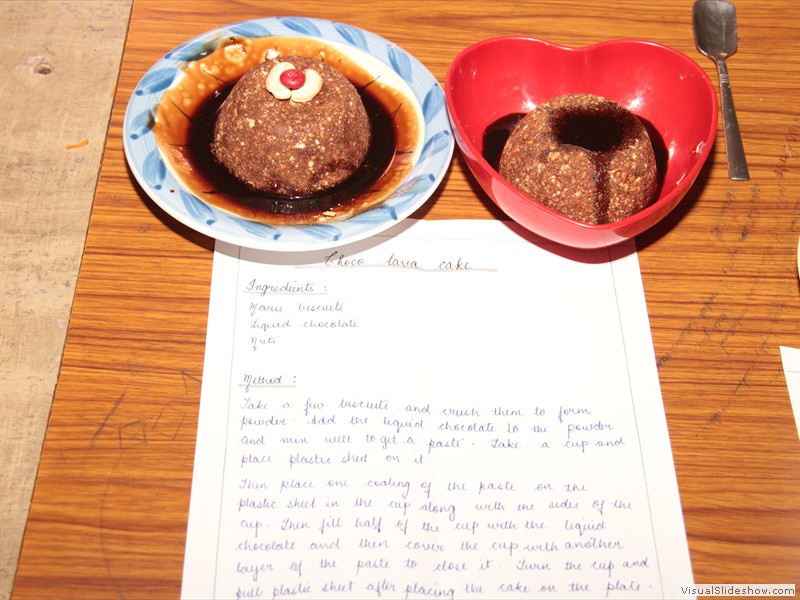 Choco-lava cake
Ingredients :
Marie biscuits
Liquid chocolate
Nuts
Method :
Take a few biscuits and crush them to form
powder. Add the liquid chocolate to the powder
and mix well to get a paste. Take a cup and
place plastic sheet on it
Then place one coating of the paste on the
plastic sheet in the cup along with the sides of the
cup. Then fill half of the cup with the liquid
chocolate and then cover the cup with another
layer of the paste to close it. Turn the cup and
pull plastic sheet after placing the cake on the plate.
VisualSlideshow.com